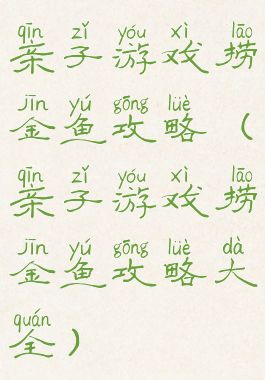 qīn zǐ yóu xì lāo
亲子游戏捞
jīn yú gōng lüè
金鱼攻略（
qīn zǐ yóu xì lāo
亲子游戏捞
jīn yú gōng lüè dà
金鱼攻略大
quán
全）